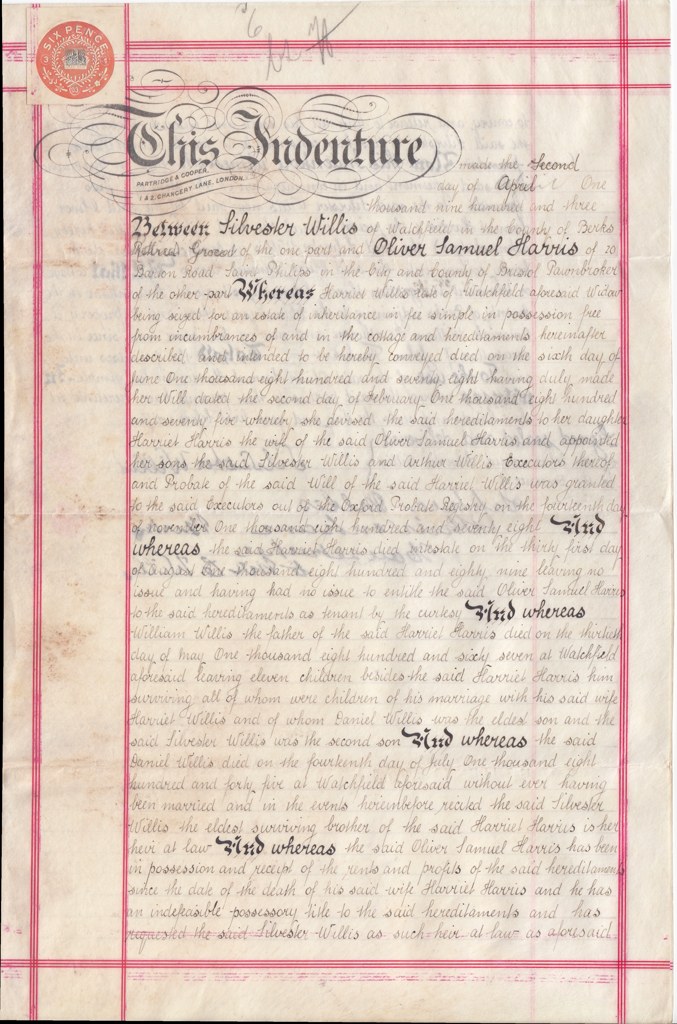 SIX PENCE
This Indenture
PARTRIDGE & COOPER,
1 & 2, CHANCERY LANE, LONDON.
made the Second
day of April One
thousand nine hundred and three
Between Silvester Willis of Watchfield in the County of Berks
Retired Grocer of the one part and Oliver Samuel Harris of 20
Road Saint Philips in the City and County of Bristol Pawnbroker
of the other part Whereas Harriet Willis late of Watchfield aforesaid Widow
being seized for an estate of inheritance in fee simple in possession free
from incumbrances of and in the cottage and hereditaments hereinafter
described and intended to be hereby conveyed died on the sixth day of
June One thousand eight hundred and seventy eight having duly made
her Will dated the second day of February One thousand eight hundred
and seventy five whereby she devised the said hereditaments to her daughter
Harriet Harris the wife of the said Oliver Samuel Harris and appointed
her sons the said Silvester Willis and Arthur Willis Executors thereof
and Probate of the said Will of the said Harriet Willis was granted
to the said Executors out of the Oxford Probate Registry on the fourteenth day
of November One thousand eight hundred and seventy eight And
whereas the said Harriet Harris died intestate on the thirty first day
of thousand eight hundred and eighty nine leaving no
issue and having had no issue to entitle the said Oliver Samuel Harris
to the said hereditaments as tenant by the curtesy And whereas
William Willis the father of the said Harriet Harris died on the thirtieth
day of May One thousand eight hundred and sixty seven at Watchfield
aforesaid leaving eleven children besides the said Harriet Harris him
surviving all of whom were children of his marriage with his said wife
Harriet Willis and of whom Daniel Willis was the eldest son and the
said Silvester Willis was the second son And whereas the said
Daniel Willis died on the fourteenth day of July One thousand eight
hundred and forty five at Watchfield aforesaid without ever having
been married and in the events hereinbefore recited the said Silvester
Willis the eldest surviving brother of the said Harriet Harris is her
heir at law And whereas the said Oliver Samuel Harris has been
in possession and receipt of the rents and profits of the said hereditaments
since the date of the death of his said wife Harriet Harris and he has
an indefeasible possessory title to the said hereditaments and has
requested the said Silvester Willis as such heir at law as aforesaid